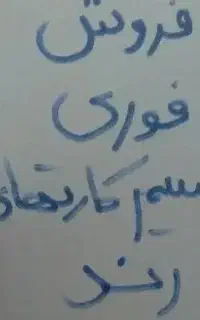 فروش
فوری
سیم کارتهای
رند